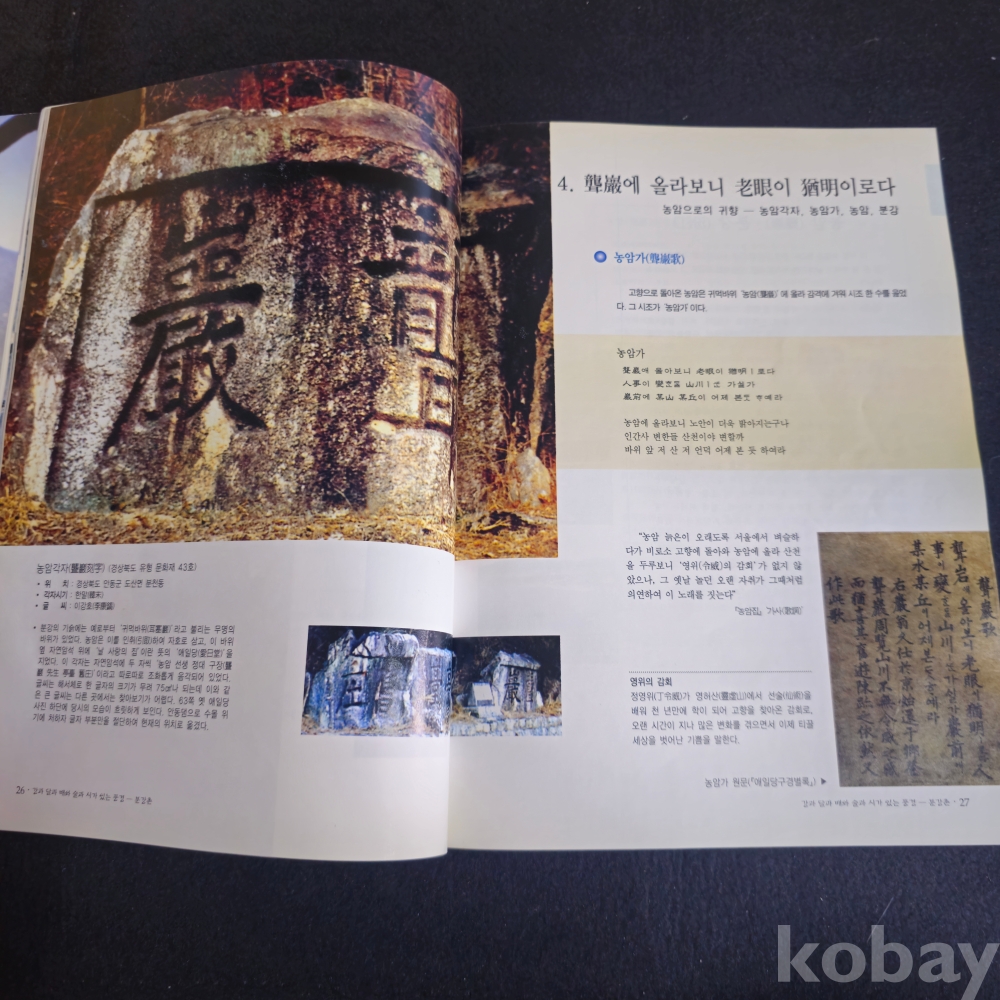 巖
농암각자(聾巖刻字) (경상북도 유형 문화재 43호)
• 위 치 : 경상북도 안동군 도산면 분천동
• 각자시기 : 한말(韓末)
• 글 씨 : 이강호
• 분강의 기슭에는 예로부터 '귀먹바위(耳塞巖)'라고 불리는 무명의
바위가 있었다. 농암은 이를 인취(引取)하여 자호로 삼고, 이 바위
옆 자연암석 위에 '날 사랑의 집'이란 뜻의 '애일당(愛日堂)'을
지었다. 이 각자는 자연암석에 두 자씩 '농암 선생 정대 구장(聾
巖 先生 亭臺 舊庄)'이라고 따로따로 조화롭게 음각되어 있었다.
글씨는 해서체로 한 글자의 크기가 무려 75㎠나 되는데 이와 같
은 큰 글씨는 다른 곳에서는 찾아보기가 어렵다. 63쪽 옛 애일당
사진 하단에 당시의 모습이 흐릿하게 보인다. 안동댐으로 수몰 위
기에 처하자 글자 부분만을 절단하여 현재의 위치로 옮겼다.
26 • 강과 달과 배와 술과 시가 있는 풍경 — 분강촌
4. 聾巖에 올라보니 老眼이 猶明이로다
농암으로의 귀향 — 농암각자, 농암가, 농암, 분강
농암가(聾巖歌)
고향으로 돌아온 농암은 귀먹바위 '농암(聾巖)'에 올라 감격에 겨워 시조 한 수를 읊었
다. 그 시조가 '농암가'이다.
농암가
聾巖애 올아보니 老眼이 猶明ㅣ로다
人事이 變 山川ㅣ 가실가
巖前에 某山 某丘이 어제 본 예라
농암에 올라보니 노안이 더욱 밝아지는구나
인간사 변한들 산천이야 변할까
바위 앞 저 산 저 언덕 어제 본 듯 하여라
"농암 늙은이 오래도록 서울에서 벼슬하
다가 비로소 고향에 돌아와 농암에 올라 산천
을 두루보니 '영위(令威)의 감회'가 없지 않
았으나, 그 옛날 놀던 오랜 자취가 그때처럼
의연하여 이 노래를 짓는다"
『농암집』 가사(歌詞)
영위의 감회
정영위(丁令威)가 영허산(靈虛山)에서 선술(仙術)을
배워 천 년만에 학이 되어 고향을 찾아온 감회로,
오랜 시간이 지나 많은 변화를 겪으면서 이제 타끌
세상을 벗어난 기쁨을 말한다.
농암가 원문(『애일당구경별록』) ▶
聾岩歌
聾岩애 올아보니 老眼이 猶明
作此歌
강과 달과 배와 술과 시가 있는 풍경 — 분강촌 • 27
kobay